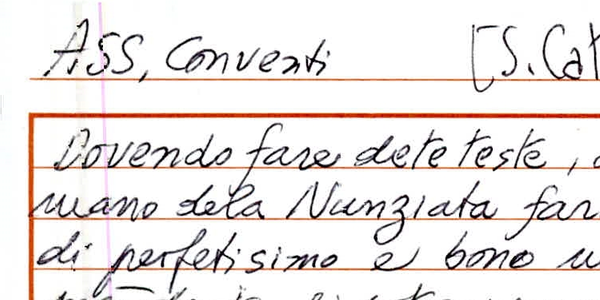 ASS, Conventi [S. Cat
Dovendo fare dete teste,
mano dela Nunziata far
di perfetisimo e bono